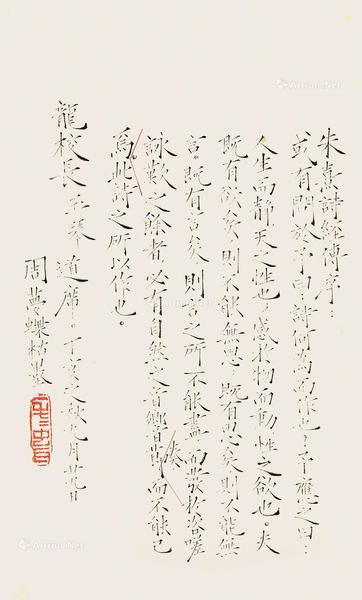 朱熹詩經傳序：
或有問於予曰：詩何為而作也？予應之曰：
人生而靜天之性也，感於物而動性之欲也。夫
既有欲矣，則不能無思，既有思矣則不能無
言。既有言矣，則言之所不能盡而發於咨嗟
詠歎之餘者，必有自然之音響節奏而不能已
焉。此詩之所以作也。
龍校長玉琴 道席。丁亥之秋九月廿日
周夢蝶
Artron.Net
Artron.Net